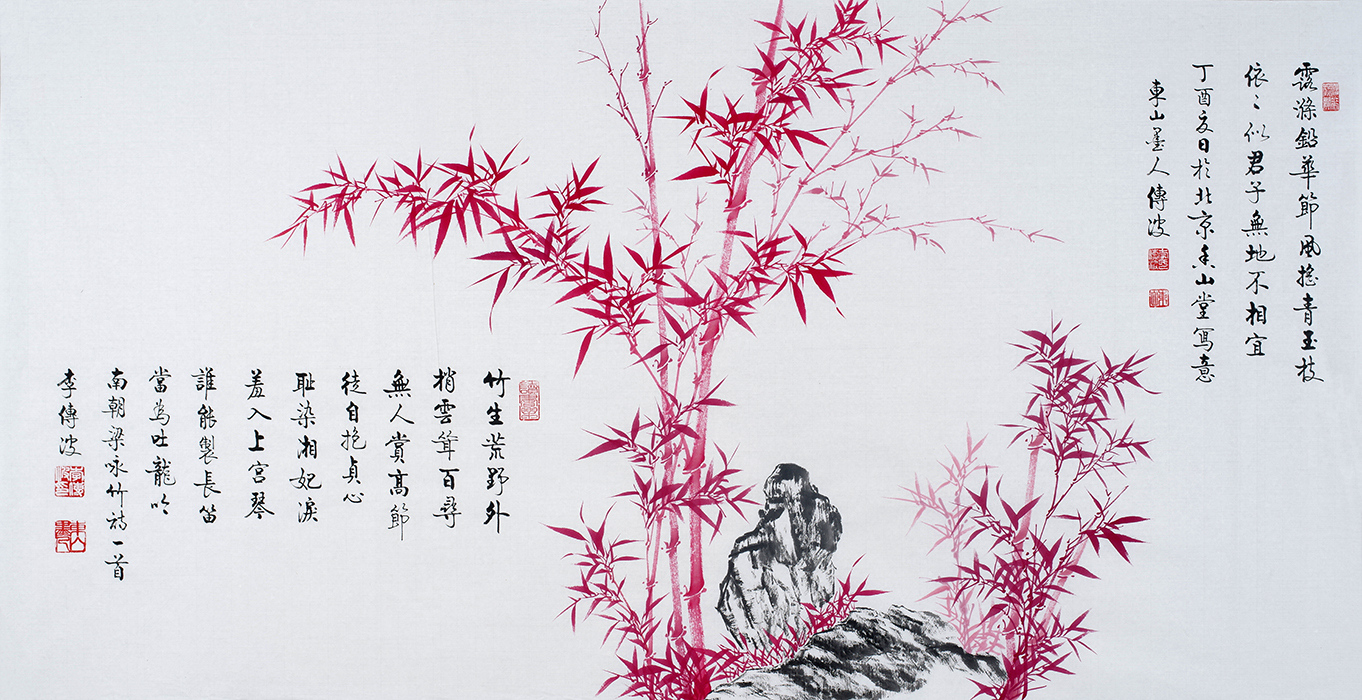 露滌鉛華節風搖青玉枝
依〻似君子無地不相宜
丁酉夏日於北京山堂寫意
東山墨人傳波
竹生荒野外
梢雲聳百尋
無人賞高節
徒自抱貞心
耻染湘妃淚
羞入上宮琴
誰能製長笛
當為吐龍吟
南朝梁咏竹詩一首
李傳波